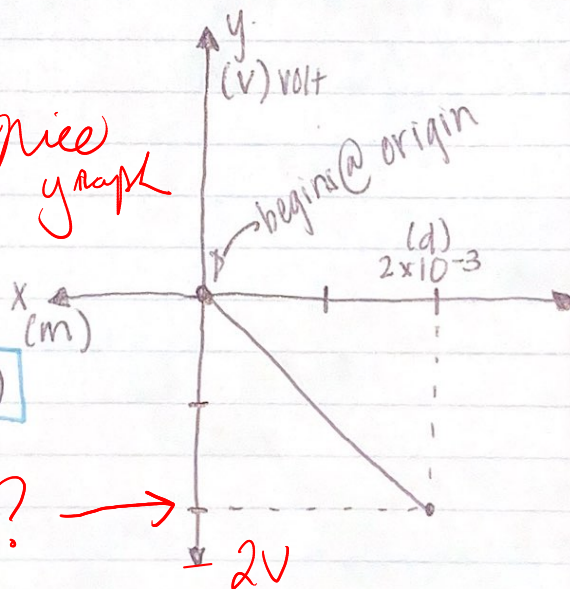 y.
(V) volt
Nice
graph
begins @ origin
(d)
2x10⁻³
X
(m)
)
?
2V